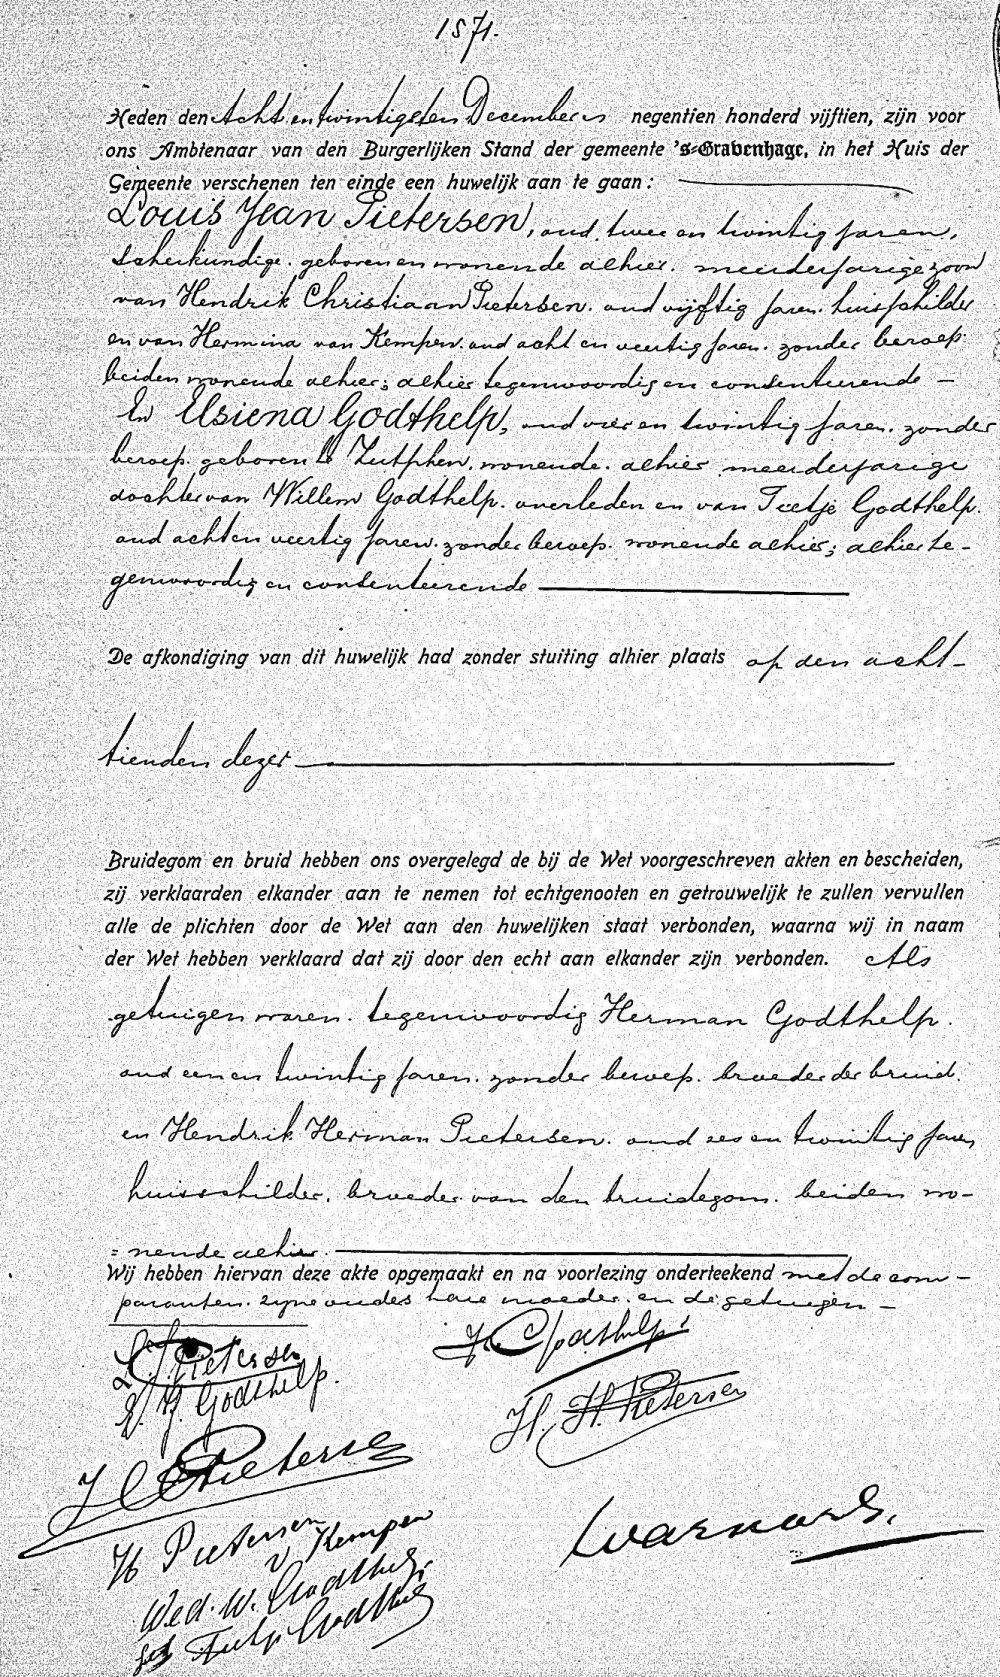 1571.
Heden den Acht en twintigsten December negentien honderd vijftien, zijn voor
ons Ambtenaar van den Burgerlijken Stand der gemeente 's-Gravenhage, in het Huis der
Gemeente verschenen ten einde een huwelijk aan te gaan:
Louis Jean Pietersen, oud twee en twintig jaren,
scheikundige, geboren en wonende alhier, meerderjarige zoon
van Hendrik Christiaan Pietersen, oud vijftig jaren, huisschilder
en van Hermina van Kempen, oud acht en veertig jaren, zonder beroep,
beiden wonende alhier; alhier tegenwoordig en consenteerende —
En Elsiena Godthelp, oud vier en twintig jaren, zonder
beroep, geboren te Zutphen, wonende alhier meerderjarige
dochter van Willem Godthelp, overleden en van Tietje Godthelp,
oud acht en veertig jaren, zonder beroep, wonende alhier; alhier te-
genwoordig en consenteerende
De afkondiging van dit huwelijk had zonder stuiting alhier plaats op den acht-
tienden dezer
Bruidegom en bruid hebben ons overgelegd de bij de Wet voorgeschreven akten en bescheiden,
zij verklaarden elkander aan te nemen tot echtgenooten en getrouwelijk te zullen vervullen
alle de plichten door de Wet aan den huwelijken staat verbonden, waarna wij in naam
der Wet hebben verklaard dat zij door den echt aan elkander zijn verbonden. Als
getuigen waren tegenwoordig Herman Godthelp,
oud een en twintig jaren, zonder beroep, broeder der bruid,
en Hendrik Herman Pietersen, oud zes en twintig jaren,
huisschilder, broeder van den bruidegom, beiden wo-
= nende alhier.
Wij hebben hiervan deze akte opgemaakt en na voorlezing onderteekend met de com-
paranten, zijne ouders hare moeder en de getuigen —
L. J. Pietersen
H. Godthelp
E. Godthelp.
H. H. Pietersen
H C Pietersen
H Pietersen
v Kempen
Warnars.
Wed. W. Godthelp,
Godthelp